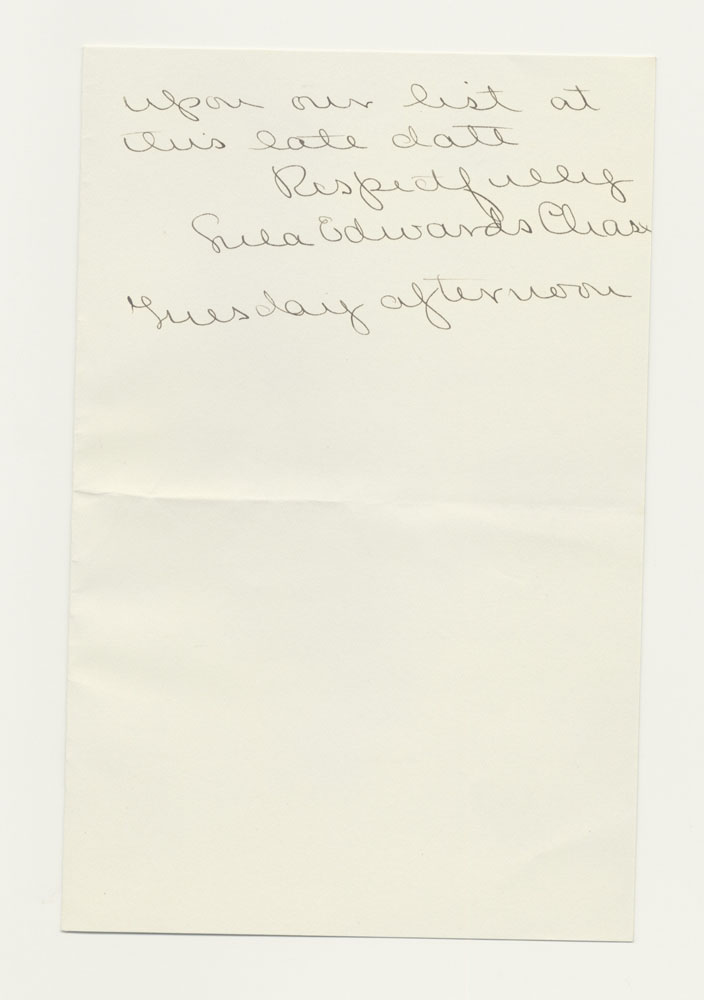 upon our list at
this late date
Respectfully
Edwards Chase
Tuesday afternoon